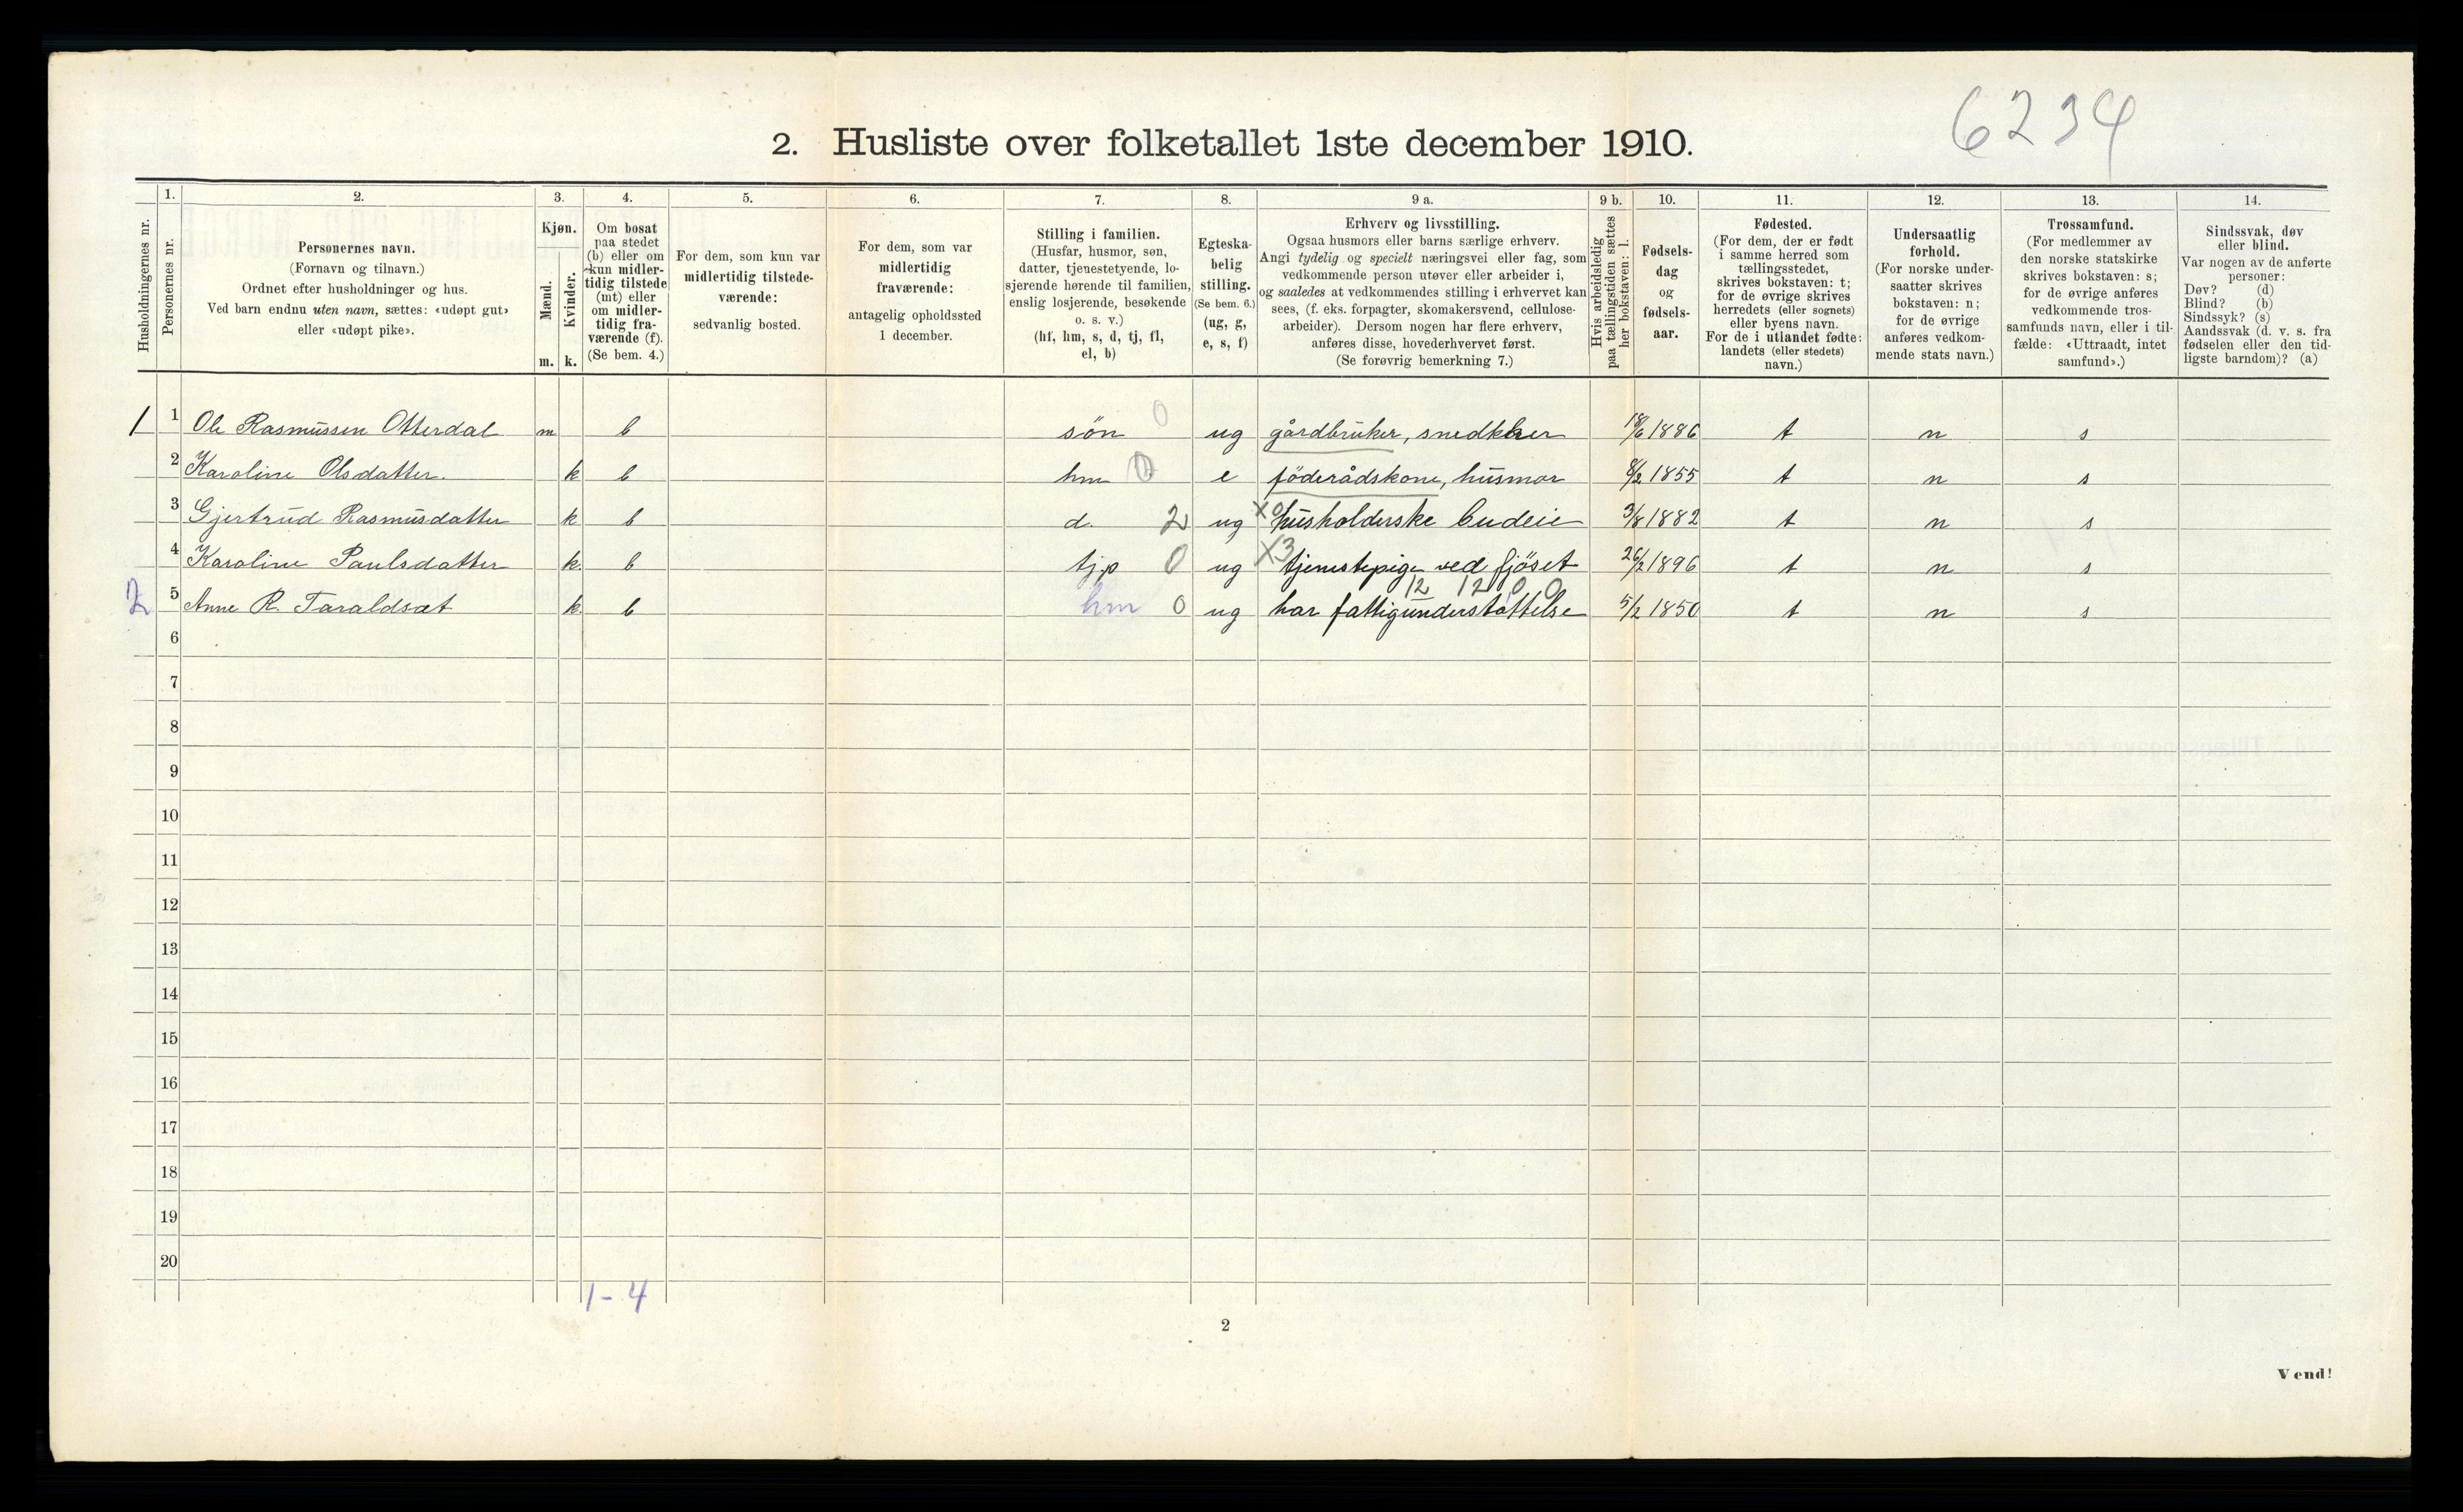 6234
2. Husliste over folketallet 1ste december 1910.
Husholdningernes nr.
1.
Personernes nr.
2.
Personernes navn.
(Fornavn og tilnavn.)
Ordnet efter husholdninger og hus.
Ved barn endnu uten navn, sættes: «udøpt gut»
eller «udøpt pike».
3.
Kjøn.
Mænd.
Kvinder.
m. k.
4.
Om bosat
paa stedet
(b) eller om
kun midler-
tidig tilstede
(mt) eller
om midler-
tidig fra-
værende (f).
(Se bem. 4.)
5.
For dem, som kun var
midlertidig tilstede-
værende:
sedvanlig bosted.
6.
For dem, som var
midlertidig
fraværende:
antagelig opholdssted
1 december.
7.
Stilling i familien.
(Husfar, husmor, søn,
datter, tjenestetyende, lo-
sjerende hørende til familien,
enslig losjerende, besøkende
o. s. v.)
(hf, hm, s, d, tj, fl,
el, b)
8.
Egteska-
belig
stilling.
(Se bem. 6.)
(ug, g,
e, s, f)
9 a.
Erhverv og livsstilling.
Ogsaa husmors eller barns særlige erhverv.
Angi tydelig og specielt næringsvei eller fag, som
vedkommende person utøver eller arbeider i,
og saaledes at vedkommendes stilling i erhvervet kan
sees, (f. eks. forpagter, skomakersvend, cellulose-
arbeider). Dersom nogen har flere erhverv,
anføres disse, hovederhvervet først.
(Se forøvrig bemerkning 7.)
9 b.
Hvis arbeidsledig
paa tællingstiden sættes
her bokstaven: l.
10.
Fødsels-
dag
og
fødsels-
aar.
11.
Fødested.
(For dem, der er født
i samme herred som
tællingsstedet,
skrives bokstaven: t;
for de øvrige skrives
herredets (eller sognets)
eller byens navn.
For de i utlandet fødte:
landets (eller stedets)
navn.)
12.
Undersaatlig
forhold.
(For norske under-
saatter skrives
bokstaven: n;
for de øvrige
anføres vedkom-
mende stats navn.)
13.
Trossamfund.
(For medlemmer av
den norske statskirke
skrives bokstaven: s;
for de øvrige anføres
vedkommende tros-
samfunds navn, eller i til-
fælde: «Uttraadt, intet
samfund».)
14.
Sindssvak, døv
eller blind.
Var nogen av de anførte
personer:
Døv? (d)
Blind? (b)
Sindssyk? (s)
Aandssvak (d. v. s. fra
fødselen eller den tid-
ligste barndom)? (a)
1 1 Ole Rasmussen Otterdal m b søn 0 ug gårdbruker, snedkker 18/6 1886 t n s
2 Karoline Olsdatter. k b hm 0 e föderådskone, husmor 8/2 1855 t n s
3 Gjertrud Rasmusdatter k b d. 2 ug X0 husholderske budeie 3/8 1882 t n s
4 Karoline Paulsdatter k. b tj.p 0 ug X3 tjenestepige ved fjöset 26/2 1896 t n s
12 1200
2 5 Anne R. Taraldsæt k b hm 0 ug har fattigunderstøttelse 5/2 1850 t n s
6
7
8
9
10
11
12
13
14
15
16
17
18
19
20
1 - 4
2
Vend!